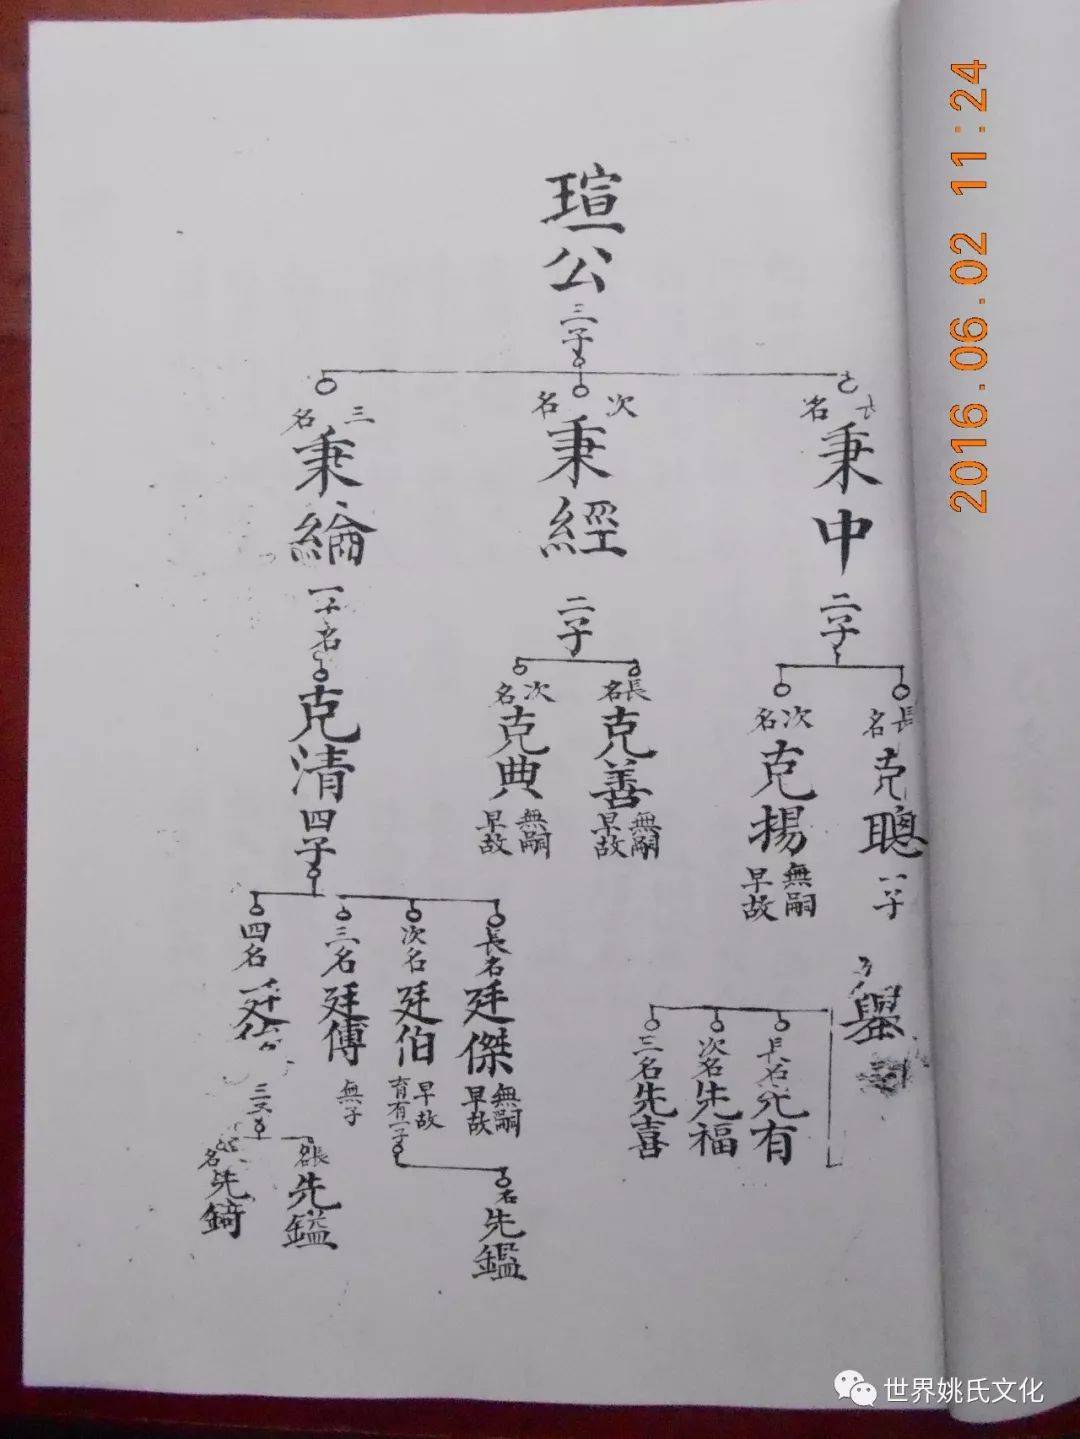 瑄公
三子
長名
秉中
二子
長名
克聰
一子
名
舉
長名先有
次名先福
三名先喜
次名
克揚
無嗣
早故
次名
秉經
二子
長名
克善
無嗣
早故
次名
克典
無嗣
早故
三名
秉綸
一子名
克清
四子
長名廷傑
無嗣
早故
次名廷伯
早故
育有一子
名先鑑
三名廷傅
無子
四名廷
長名先鎰
名先錡
2016.06.02 11:24
世界姚氏文化